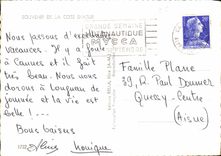 SOUVENIR DE LA COTE D'AZUR
Nous passons d'excellentes
vacances. Il y a foule
à Cannes et il fait
très beau. Nous nous
dorons à longueur de
journée et la vie est
belle ! ...
Bons baisers
Monique
GRANDE SEMAINE
NAUTIQUE
Famille Plane
39, R. Paul Doumer
Quessy-Centre
(Aisne)